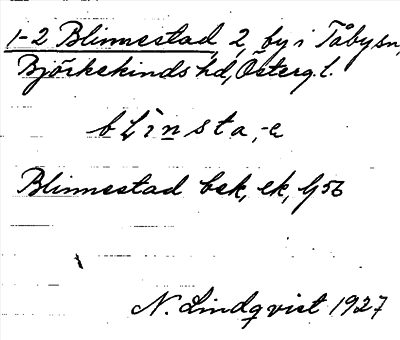 1-2 Blinnestad, 2, by i Tåby sn,
Björkekinds hd, Östergl.
blinsta, -e
Blinnestad bsk, ek, G 56
N. Lindqvist 1927